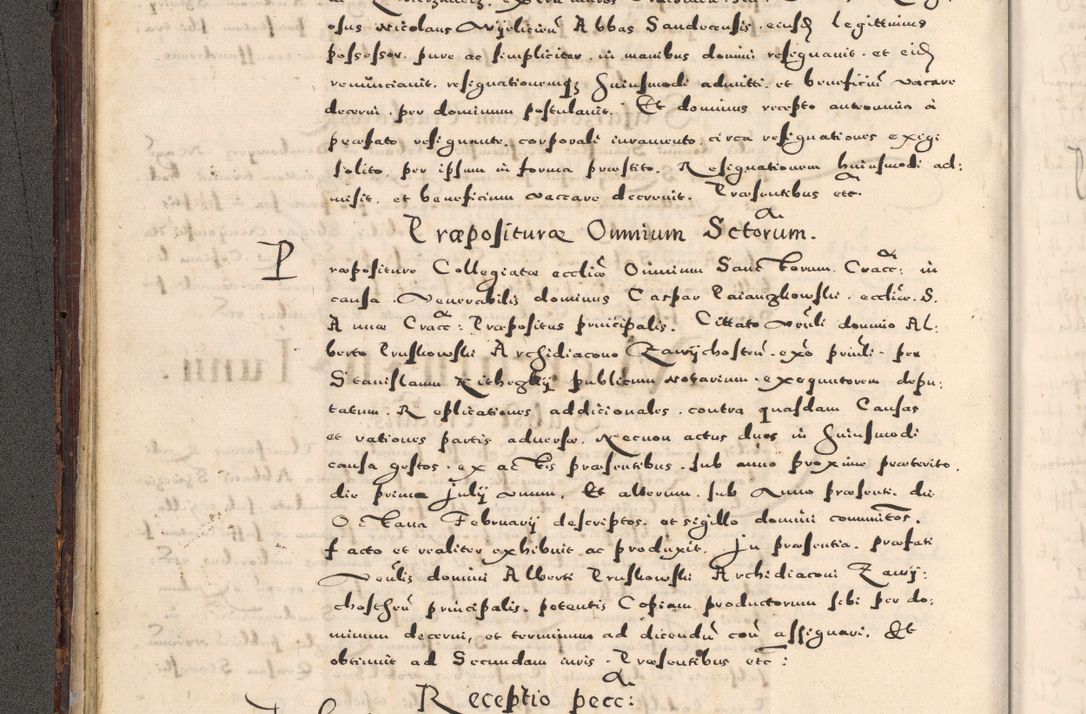 osus Nicolaus Abbas Sandecensis, eiusd legittimus
possessor, pure ac simpliciter in manibus domini resignavit et eid
renunciavit, resignationemq huiusmodi admitti, et beneficiũ vacare
decerni, per dominum postulavit. Et dominus recepto à
præfato resignante corporali iuramento, circa resignationes exigi
solito, per ipsum in forma præstito. Resignationem huiusmodi ad:
misit, et beneficium vaccare decrevit. Præsentibus etc.
Præposituræ Omnium Sctorum.
Præposituræ Collegiatæ eccliæ Omnium Sanctorum. Cracc: in
causa. Venerabilis dominus Caspar eccliæ. S.
Annæ Cracc: Præpositus principalis. Cittato domino Al:
berto Pruskowski Archidiacono per
Stanislaum publicum Notarium exequutorem depu:
tatum. Replicationes addicionales. contra quasdam Causas
et rationes partis adversæ. Necnon actus duos in huiusmodi
causa gestos. ex actis præsentibus. sub anno proximo præterito.
die prima Julij unum. Et alterum. sub Anno præsenti. die
Octava Februarij descriptos. et sigillo domini
facto et realiter exhibuit ac produxit. In præsentia. præfati
domini Alberti Pruskowski Archidiaconi Zawij:
principalis. petentis Copiam productorum sibi per do:
minum decerni, et terminum ad dicendũ assignari. Et
obtinuit ad Secundam iuris. Præsentibus etc:
Receptio pecc: